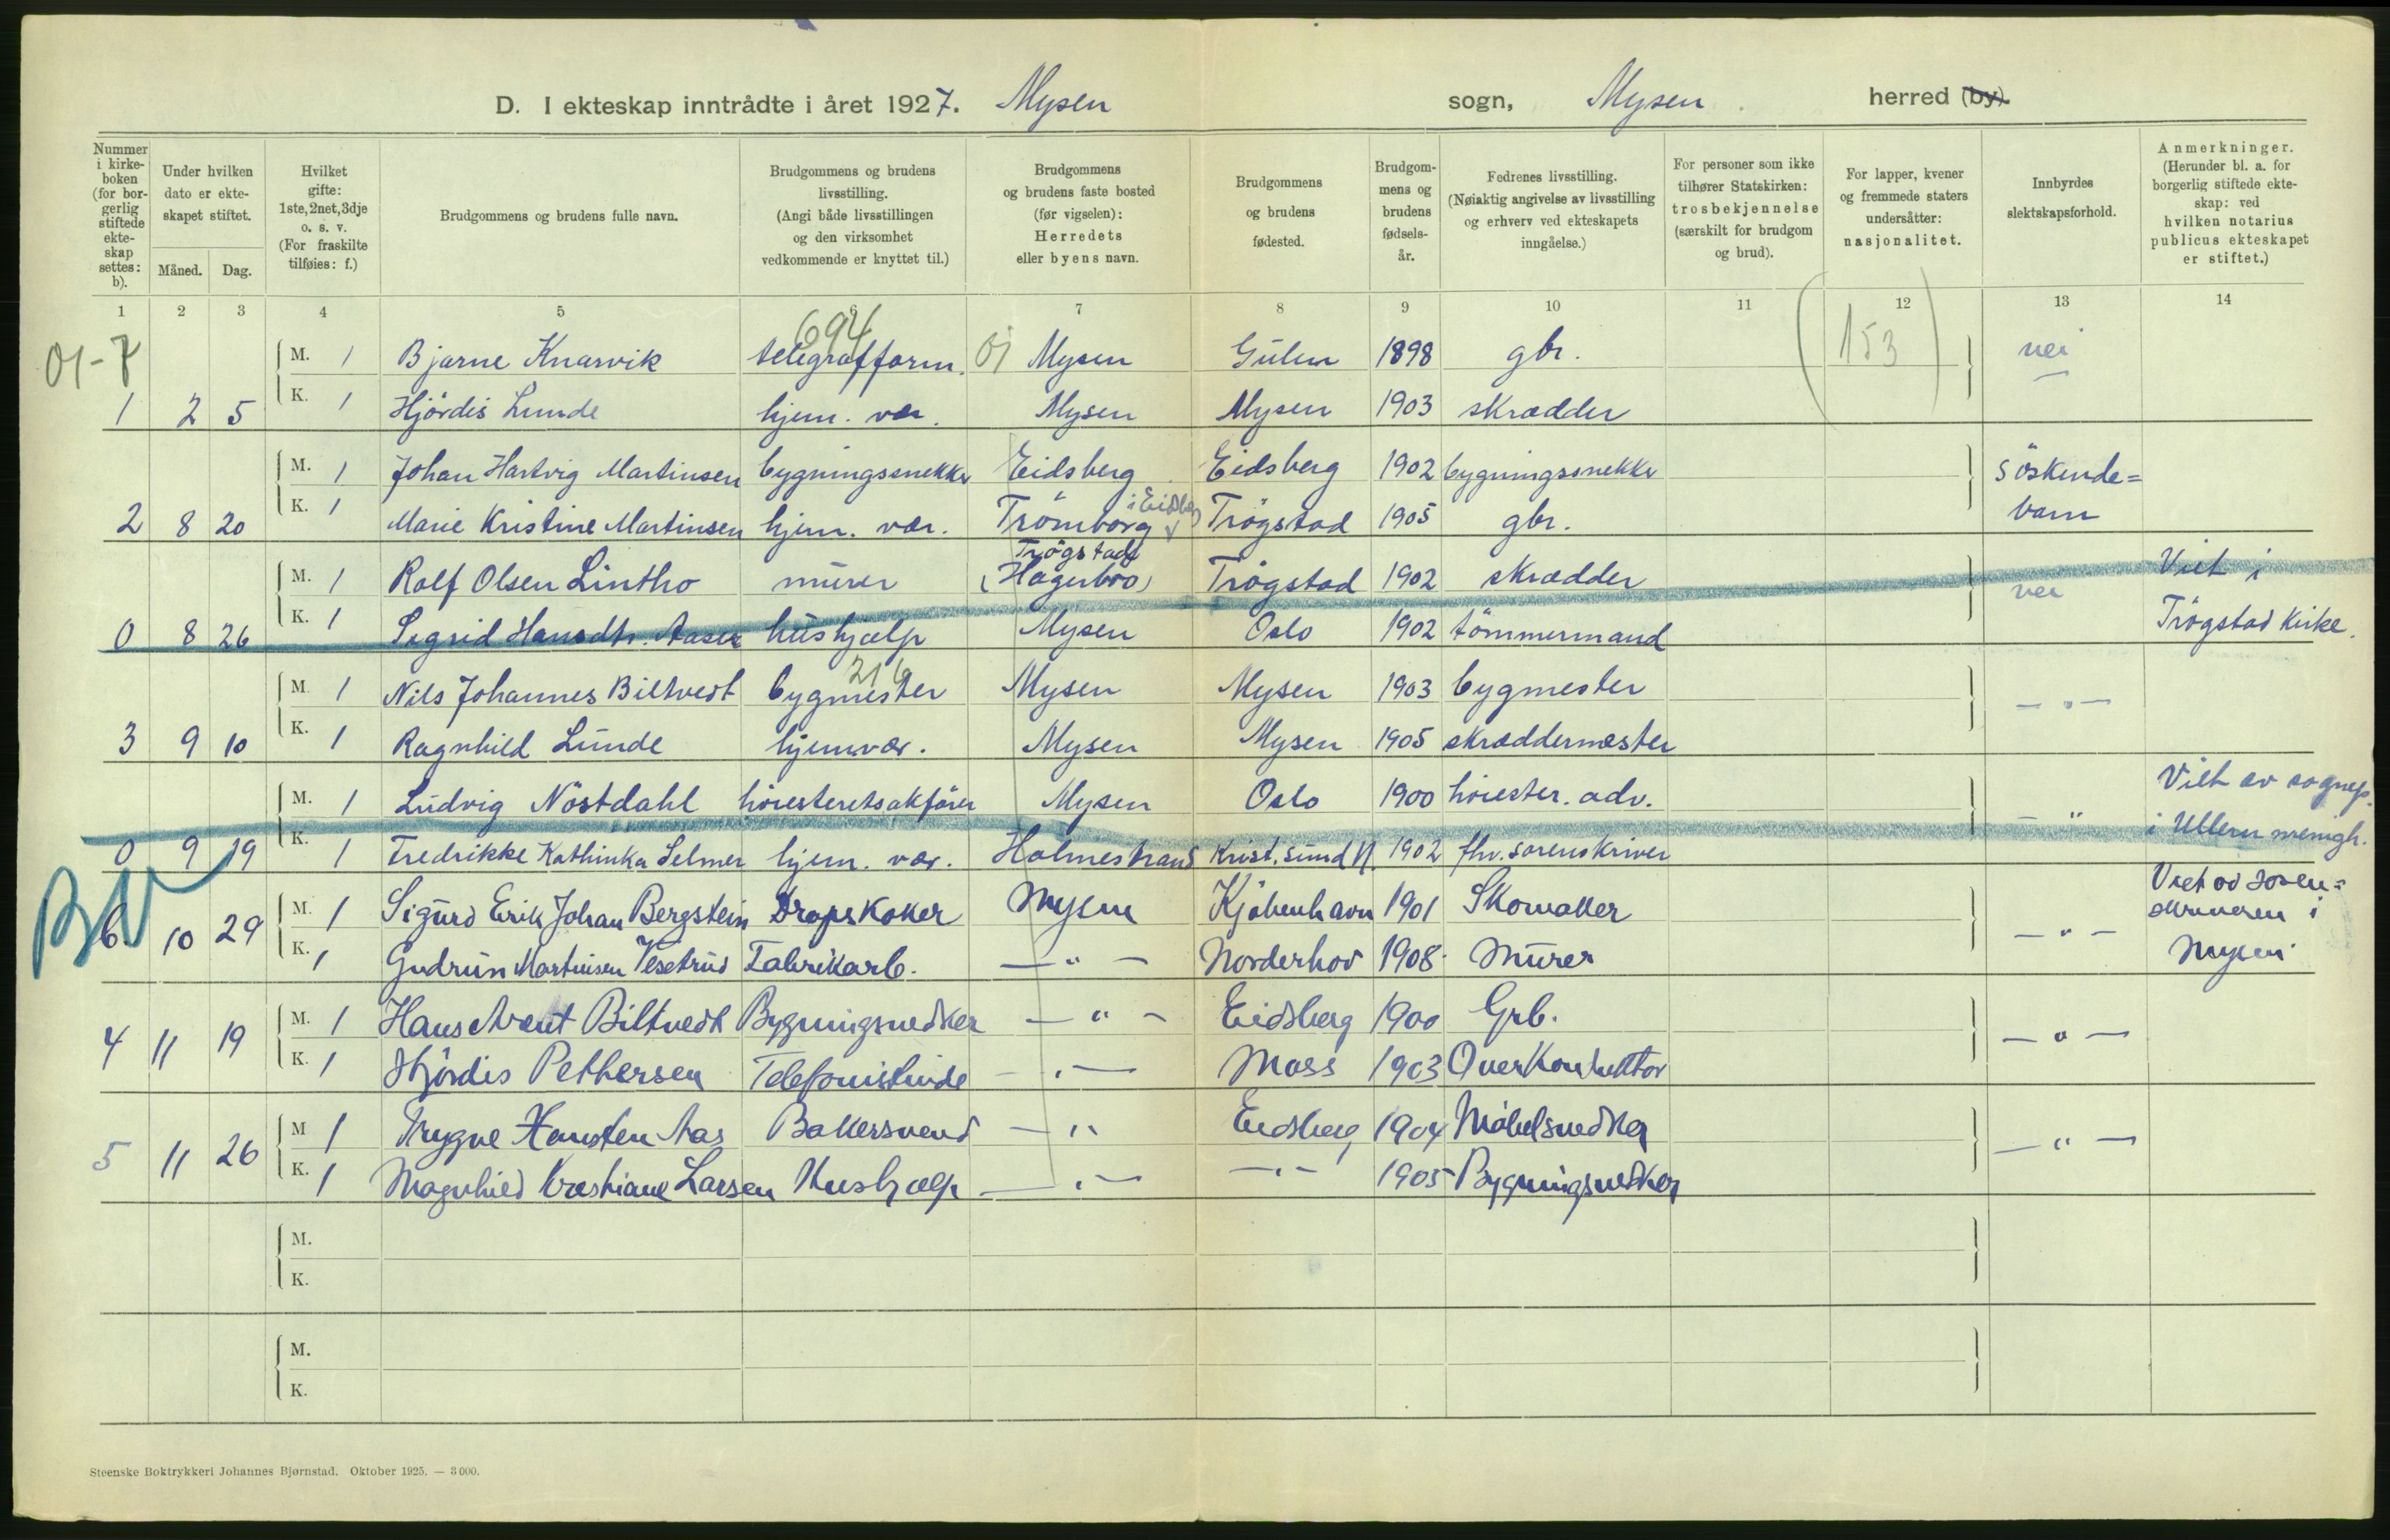 D. I ekteskap inntrådte i året 1927. Mysen sogn, Mysen herred (by).
Nummer i kirke-boken (for bor-gerlig stiftede ekte-skap settes: b).
Under hvilken dato er ekte-skapet stiftet.
Måned. Dag.
Hvilket gifte: 1ste, 2net, 3dje o. s. v. (For fraskilte tilføies: f.)
Brudgommens og brudens fulle navn.
Brudgommens og brudens livsstilling. (Angi både livsstillingen og den virksomhet vedkommende er knyttet til.)
Brudgommens og brudens faste bosted (før vigselen): Herredets eller byens navn.
Brudgommens og brudens fødested.
Brudgom-mens og brudens fødsels-år.
Fedrenes livsstilling. (Nøiaktig angivelse av livsstilling og erhverv ved ekteskapets inngåelse.)
For personer som ikke tilhører Statskirken: trosbekjennelse (særskilt for brudgom og brud).
For lapper, kvener og fremmede staters undersåtter: nasjonalitet.
Innbyrdes slektskapsforhold.
Anmerkninger. (Herunder bl. a. for borgerlig stiftede ekte-skap: ved hvilken notarius publicus ekteskapet er stiftet.)
1 2 3 4 5 6 7 8 9 10 11 12 13 14
01-7 694 01 (153)
M. 1 Bjarne Knarvik telegrafform. Mysen Gulen 1898 gbr. nei
1 2 5 K. 1 Hjördis Lunde hjem. vær. Mysen Mysen 1903 skrædder
M. 1 Johan Hartvig Martinsen bygningssnekker Eidsberg Eidsberg 1902 bygningssnekker söskende=
i Eidsberg
2 8 20 K. 1 Marie Kristine Martinsen hjem. vær. Trömborg Trögstad 1905 gbr. barn
Trögstad
M. 1 Rolf Olsen Lintho murer (Hagerbro) Trögstad 1902 skrædder nei Viet i
0 8 26 K. 1 Sigrid Hansdtr. Aasen hushjælp Mysen Oslo 1902 tömmermand Trögstad kirke.
216
M. 1 Nils Johannes Biltvedt bygmester Mysen Mysen 1903 bygmester — " —
3 9 10 K. 1 Ragnhild Lunde hjem. vær. Mysen Mysen 1905 skræddermester
M. 1 Ludvig Nöstdahl höiesteretsakförer Mysen Oslo 1900 höiester. adv. — " Viet av sognep.
0 9 19 K. 1 Fredrikke Kathinka Selmer hjem. vær. Holmestrand Krist.sund N. 1902 fhv. sorenskriver i Ullern menigh.
BV
6 10 29 M. 1 Sigurd Erik Johan Bergstein Dropskoker Mysen Kjöbenhavn 1901 Skomaker — " — Viet av soren=
skriveren i
K. 1 Gudrun Martinsen Vesetrud Fabrikarb. — " — Norderhov 1908 Murer Mysen
4 11 19 M. 1 Hans Biltvedt Bygningsnedker — " — Eidsberg 1900 Grb. — " —
K. 1 Hjördis Pettersen Telefonistinde — " — Moss 1903 Overkonduktör
5 11 26 M 1 Trygve Hansten Aas Bakersvend — " Eidsberg 1904 Möbelsnedker — " —
K. 1 Magnhild Kristiane Larsen Hushjælp — " — — " — 1905 Bygningsnedker
M.
K.
M.
K.
Steenske Boktrykkeri Johannes Bjørnstad. Oktober 1925. — 3000.